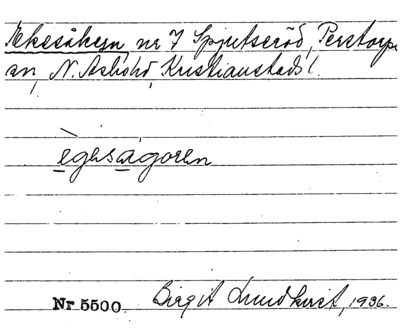 Ekesåkern, nr 7 Spjutseröd, Perstorps
sn, N. Åsbohd, Kristianstads l.
ègasagoren
Nr 5500. Birgit Lundkvist, 1936.